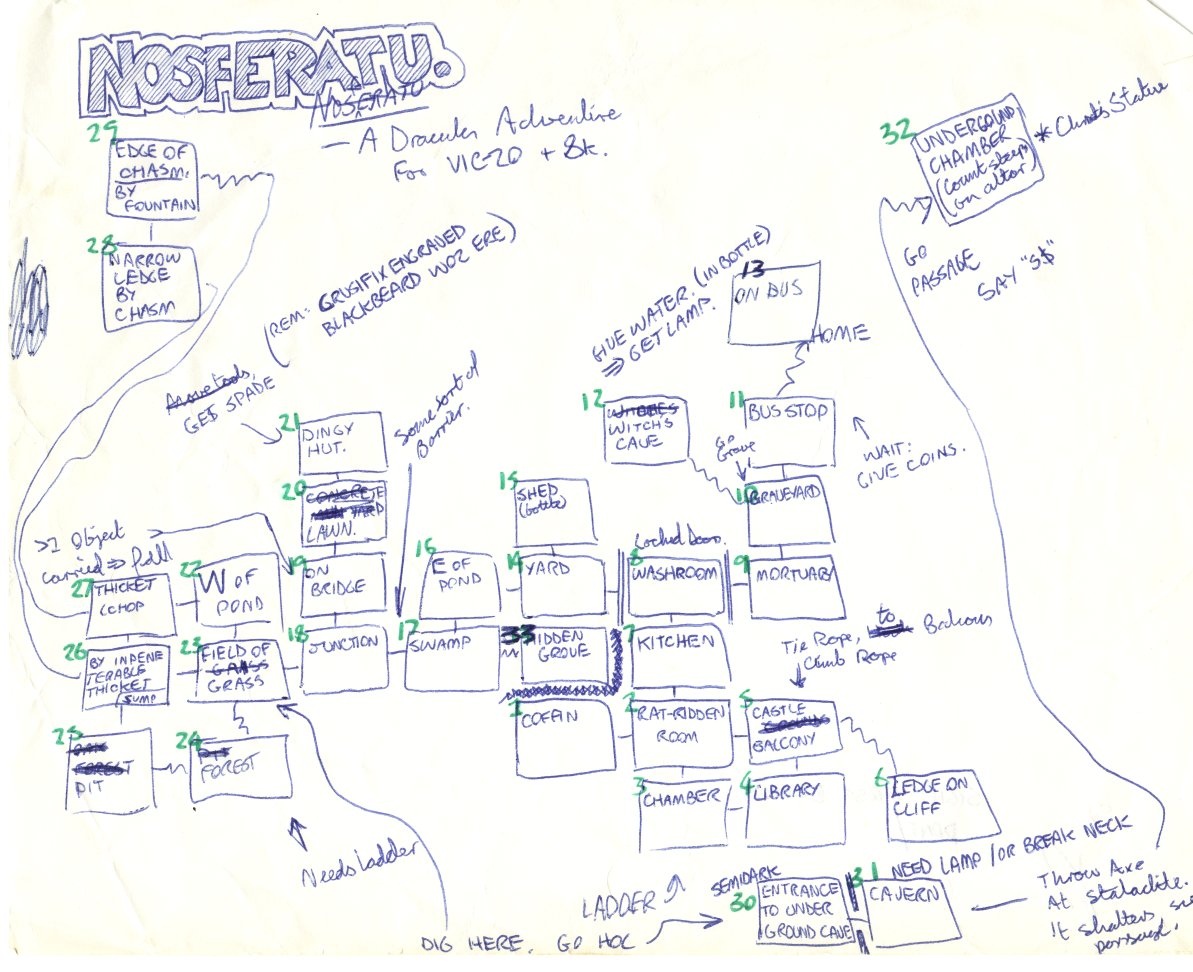 NOSFERATU.
NOSERATU
F
– A Dracula Adventure
For VIC-20 + 8k.
29
EDGE OF
CHASM.
BY
FOUNTAIN
28
NARROW
LEDGE
BY
CHASM
32
UNDERGOUND
CHAMBER
(count sleeps
on altar)
* Christ's Statue
GO
PASSAGE
SAY "S$"
(REM: CRUSIFIX ENGRAVED
BLACKBEARD WOZ ERE)
Move tools,
GET SPADE
GIVE WATER. (IN BOTTLE)
⇒ GET LAMP.
13
ON BUS
HOME
Some sort of
Barrier.
21
DINGY
HUT.
20
CONCRETE
YARD
LAWN.
12
WITCHES
WITCH'S
CAVE
11
BUS STOP
WAIT:
GIVE COINS.
Go
Grave
10
GRAVEYARD
15
SHED
(bottle)
>1 Object
carried ⇒ fall
27
THICKET
(CHOP
22
W OF
POND
19
ON
BRIDGE
16
E OF
POND
14
YARD
Locked Door.
8
WASHROOM
9
MORTUARY
26
BY INPENE
TERABLE
THICKET
SUMP
23
FIELD OF
GRASS
GRASS
18
JUNCTION
17
SWAMP
33
HIDDEN
GROVE
7
KITCHEN
Tie Rope, to Balcony
Climb Rope
25
FOREST
PIT
24
PIT
FOREST
1
COFFIN
2
RAT-RIDDEN
ROOM
5
CASTLE
GROUNDS
BALCONY
3
CHAMBER
4
LIBRARY
6
LEDGE ON
CLIFF
Needs ladder
DIG HERE. GO HOL
LADDER
SEMIDARK
30
ENTRANCE
TO UNDER
GROUND CAVE
31
NEED LAMP / OR BREAK NECK
CAVERN
Throw Axe
At Stalactite.
It shatters